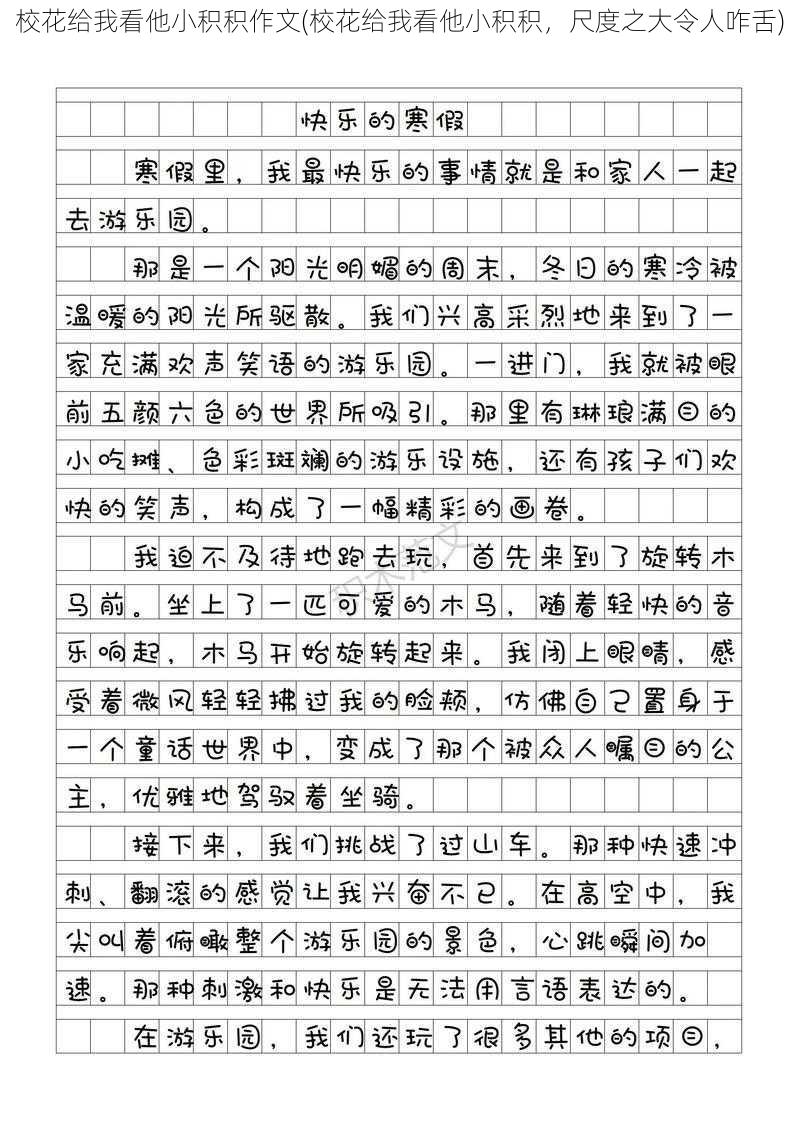 校花给我看他小积积作文(校花给我看他小积积，尺度之大令人咋舌)
快乐的寒假
寒假里，我最快乐的事情就是和家人一起
去游乐园。
那是一个阳光明媚的周末，冬日的寒冷被
温暖的阳光所驱散。我们兴高采烈地来到了一
家充满欢声笑语的游乐园。一进门，我就被眼
前五颜六色的世界所吸引。那里有琳琅满目的
小吃摊、色彩斑斓的游乐设施，还有孩子们欢
快的笑声，构成了一幅精彩的画卷。
我迫不及待地跑去玩，首先来到了旋转木
马前。坐上了一匹可爱的木马，随着轻快的音
乐响起，木马开始旋转起来。我闭上眼睛，感
受着微风轻轻拂过我的脸颊，仿佛自己置身于
一个童话世界中，变成了那个被众人瞩目的公
主，优雅地驾驭着坐骑。
接下来，我们挑战了过山车。那种快速冲
刺、翻滚的感觉让我兴奋不已。在高空中，我
尖叫着俯瞰整个游乐园的景色，心跳瞬间加
速。那种刺激和快乐是无法用言语表达的。
在游乐园，我们还玩了很多其他的项目，
积木范文